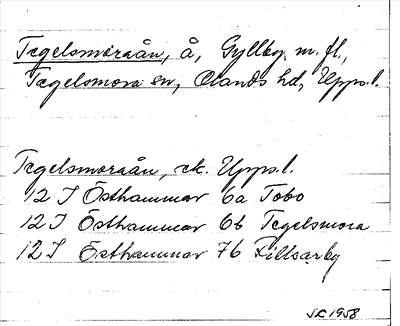 Tegelsmoraån, å, Gyllby m. fl.,
Tegelsmora sn, Olands hd, Upps. l.
Tegelsmoraån, ek. Upps. l.
12 I Östhammar 6a Tobo
12 I Östhammar 6b Tegelsmora
12 I Östhammar 7b Fillsarby
1958